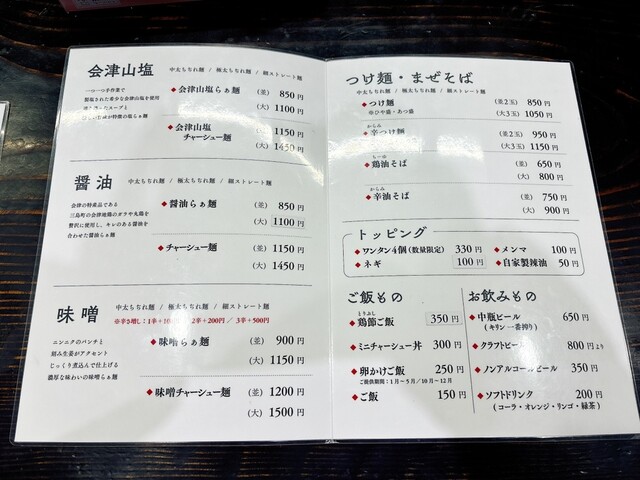 会津山塩
中太ちぢれ麺 / 極太ちぢれ麺 / 細ストレート麺
一つ一つ手作業で
製塩された希少な会津山塩を使用
スープと
特徴の塩らぁ麺
◆会津山塩らぁ麺 (並) 850円
(大) 1100円
◆会津山塩
チャーシュー麺 (並) 1150円
(大) 1450円
醤油
中太ちぢれ麺 / 極太ちぢれ麺 / 細ストレート麺
会津の特産品である
三島町の会津地鶏のガラや丸鶏を
贅沢に使用し、キレのある醤油を
合わせた醤油らぁ麺
◆醤油らぁ麺 (並) 850円
(大) 1100円
◆チャーシュー麺 (並) 1150円
(大) 1450円
味噌
中太ちぢれ麺 / 極太ちぢれ麺 / 細ストレート麺
※辛さ増し:1辛+10 2辛+200円 / 3辛+500円
ニンニクのパンチと
刻み生姜がアクセント
じっくり煮込んで仕上げる
濃厚な味わいの味噌らぁ麺
◆味噌らぁ麺 (並) 900円
(大) 1150円
◆味噌チャーシュー麺 (並) 1200円
(大) 1500円
つけ麺・まぜそば
中太ちぢれ麺 / 極太ちぢれ麺 / 細ストレート麺
◆つけ麺 (並2玉) 850円
※ひや盛・あつ盛 (大3玉) 1050円
からみ
◆辛つけ麺 (並2玉) 950円
(大3玉) 1150円
ちーゆ
◆鶏油そば (並) 650円
(大) 800円
からみ
◆辛油そば (並) 750円
(大) 900円
トッピング
◆ワンタン4個(数量限定) 330円 ◆メンマ 100円
◆ネギ 100円 ◆自家製辣油 50円
ご飯もの
とりぶし
◆鶏節ご飯 350円
◆ミニチャーシュー丼 300円
◆卵かけご飯 250円
ご提供期間:1月~5月/10月~12月
◆ご飯 150円
お飲みもの
◆中瓶ビール 650円
(キリン一番搾り)
◆クラフトビール 800円より
◆ノンアルコールビール 350円
◆ソフトドリンク 200円
(コーラ・オレンジ・リンゴ・緑茶)